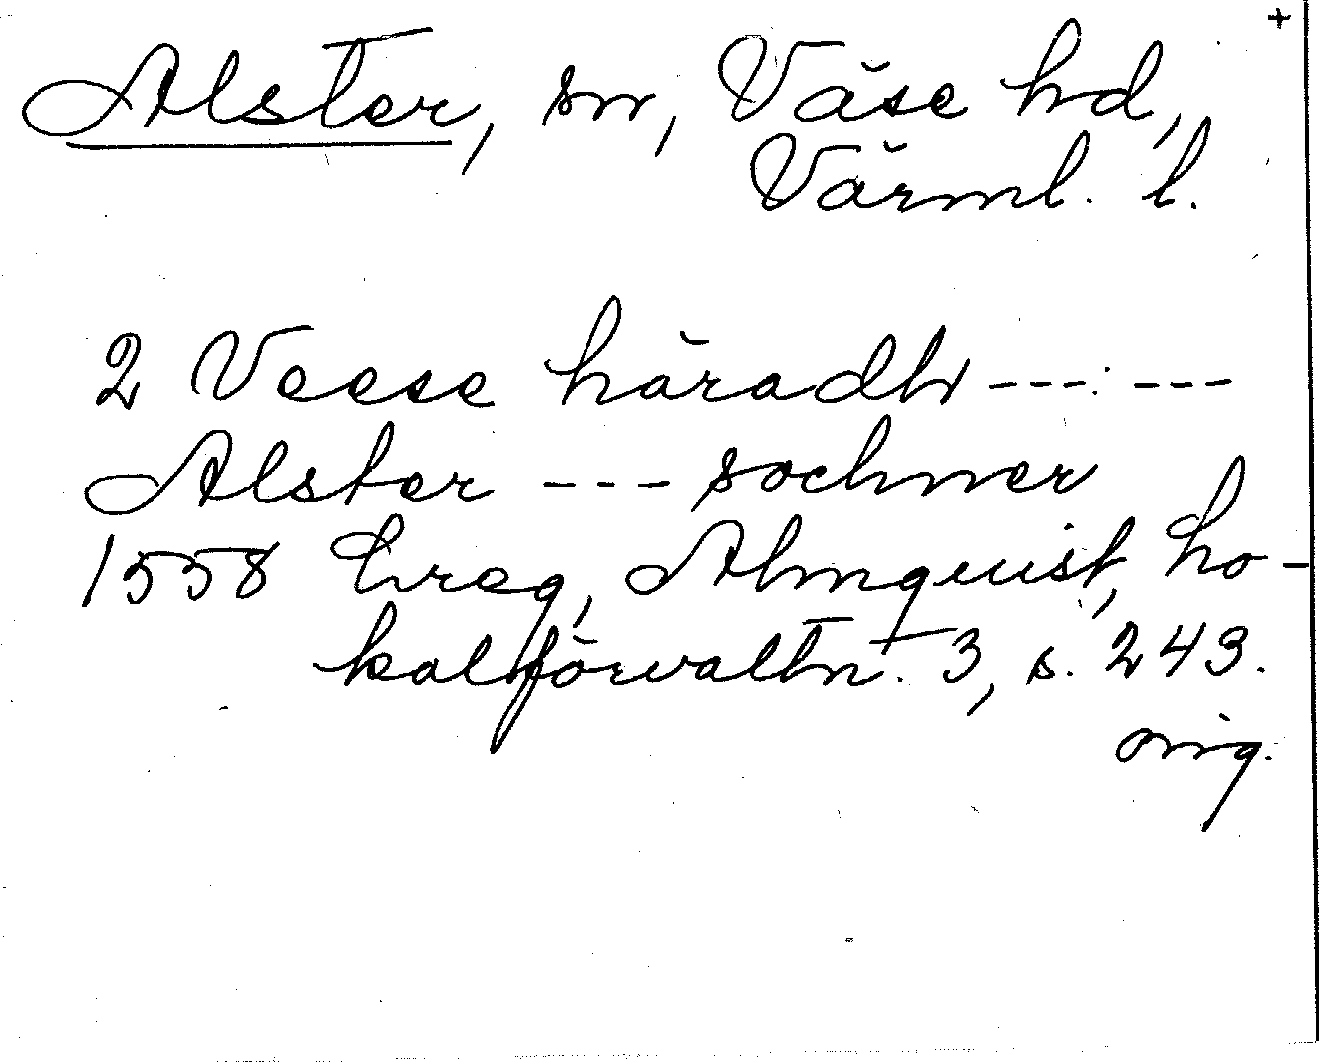 +
Alster, sn, Väse hd,
Värml. l.
2 Veese häradh --- : ---
Alster --- sochner
1558 Lreg, Almquist, Lo-
kalförvaltn. 3, s. 243.
orig.